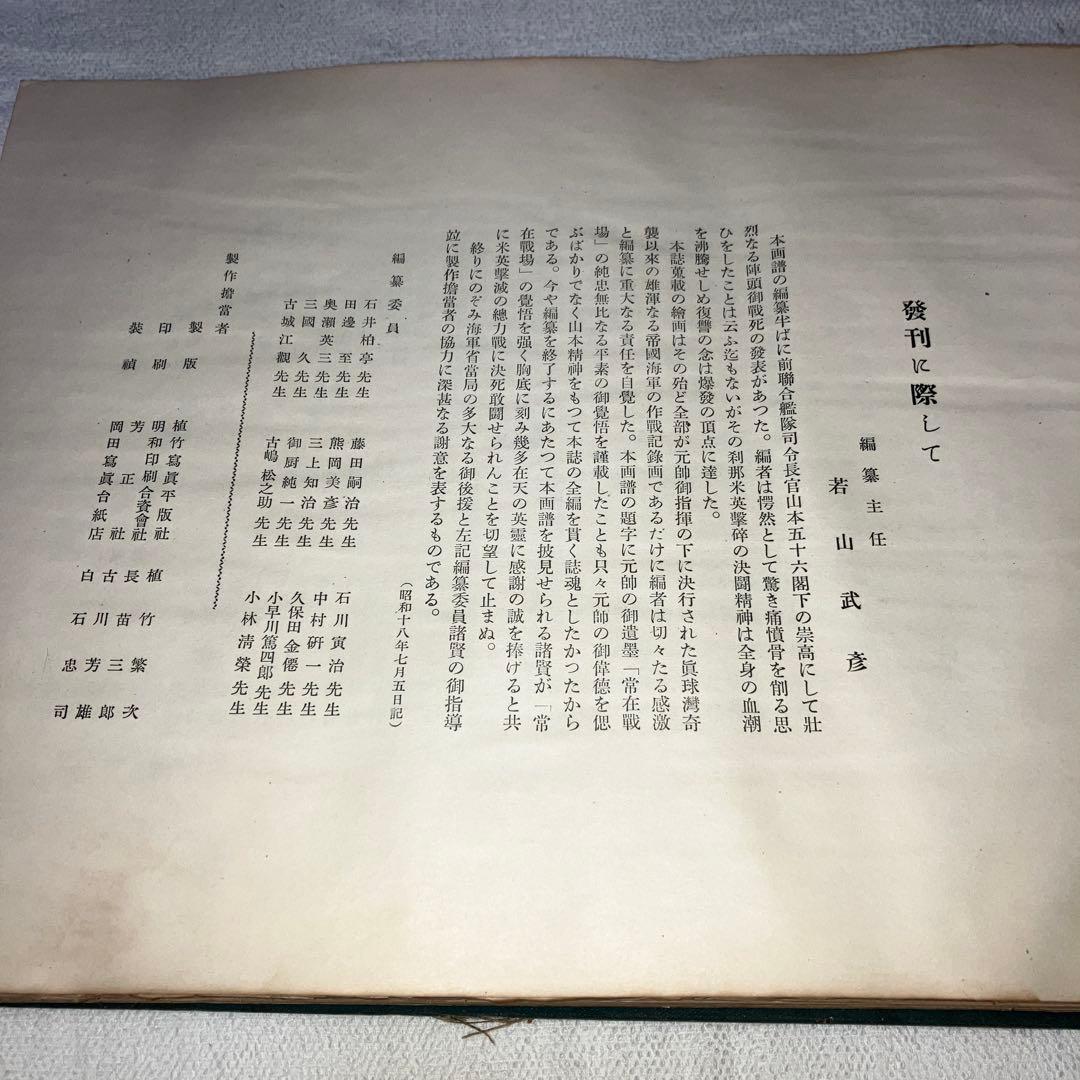 發刊に際して
編纂主任
若山武彦
本画譜の編纂半ばに前聯合艦隊司令長官山本五十六閣下の崇高にして壯
烈なる陣頭御戰死の發表があつた。編者は愕然として驚き痛憤骨を削る思
ひをしたことは云ふ迄もないがその刹那米英擊碎の決闘精神は全身の血潮
を沸騰せしめ復讐の念は爆發の頂点に達した。
本誌蒐載の絵画はその殆ど全部が元帥御指揮の下に決行された眞球灣奇
襲以來の雄渾なる帝國海軍の作戰記録画であるだけに編者は切々たる感激
と編纂に重大なる責任を自覺した。本画譜の題字に元帥の御遺墨「常在戰
場」の純忠無比なる平素の御覺悟を謹載したことも只々元師の御偉徳を偲
ぶばかりでなく山本精神をもつて本誌の全編を貫く誌魂としたかつたから
である。今や編纂を終了するにあたつて本画譜を披見せられる諸賢が、「常
在戰場」の覺悟を强く胸底に刻み幾多在天の英靈に感謝の誠を捧げると共
に米英擊滅の總力戰に決死敢闘せられんことを切望して止まぬ。
終りにのぞみ海軍省當局の多大なる御後援と左記編纂委員諸賢の御指導
竝に製作擔當者の協力に深甚なる謝意を表するものである。
(昭和十八年七月五日記)
編纂委員
石井柏亭先生 藤田嗣治先生 石川寅治先生
田邊至先生 熊岡美彦先生 中村硏一先生
奥瀬英三先生 三上知治先生 久保田金僊先生
三國久先生 御厨純一先生 小早川篤四郎先生
古城江觀先生 古嶋松之助先生 小林淸榮先生
製作擔當者
製版 植竹寫眞平版社 植竹繁次
印刷 明和印刷合資會社 長苗三郎
芳正社 古川芳雄
裝禎 岡田寫眞台紙店 白石忠司